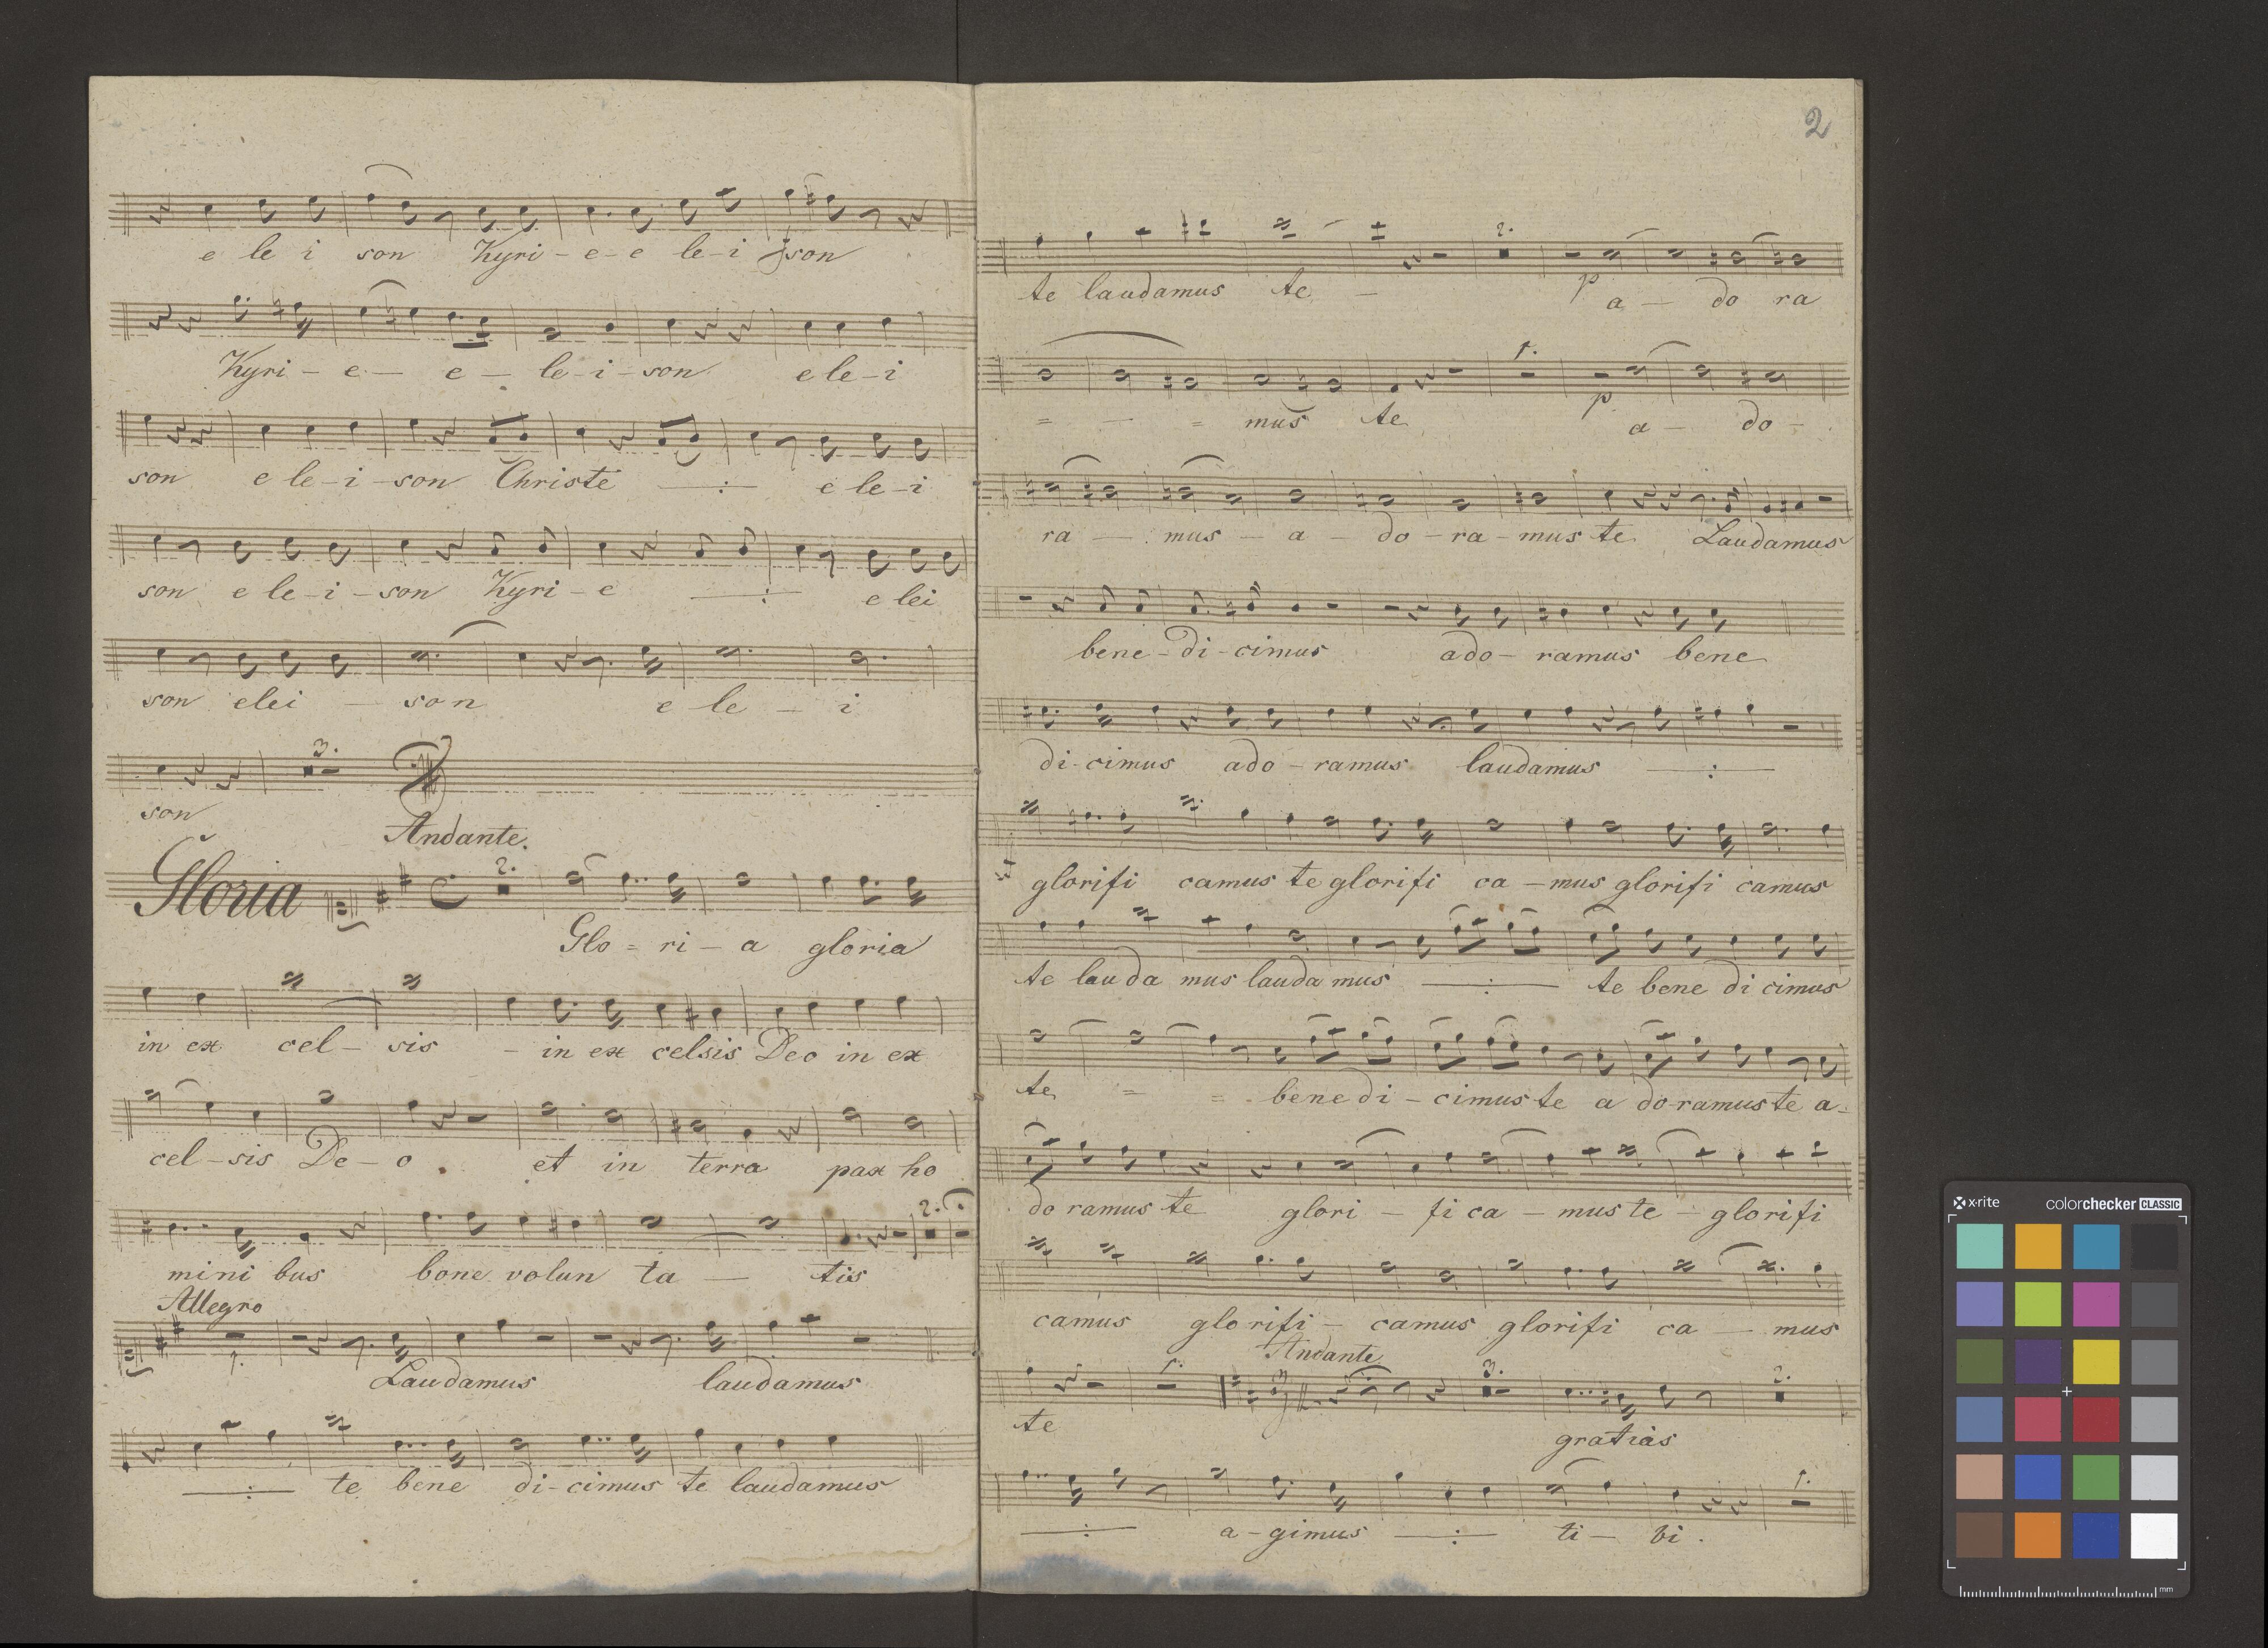 e le i son Kyri - e - e le - i son
Kyri - e - e - le - i - son e le - i
son e le - i - son Christe — : — e le - i
son e le - i - son Kyri - e — : — e lei
son elei - son e le - i
3.
son
Andante.
Gloria 2.
Glo = ri - a gloria
in ex cel - sis - in ex celsis Deo in ex
cel - sis De - o . et in terra pax ho
2.
mini bus bone volun ta — tis
Allegro
1.
Laudamus laudamus
— : — te bene di - cimus te laudamus
2
2.
te laudamus te - p a - do ra
1.
= - = mus te p a - do -
ra - mus - a - do - ra - mus te Laudamus
bene - di - cimus ado - ramus bene
di - cimus ado - ramus laudamus — : —
glorifi camus te glorifi ca - mus glorifi camus
te lauda mus lauda mus — : — te bene di cimus
te = = bene di - cimus te a do - ramus te a -
do ramus te glori - fi ca - mus te - glorifi
camus glorifi - camus glorifi ca - mus
Andante
1. 3. 2.
te gratias
1.
— : — a - gimus — : — ti - bi .
x-rite colorchecker CLASSIC
mm